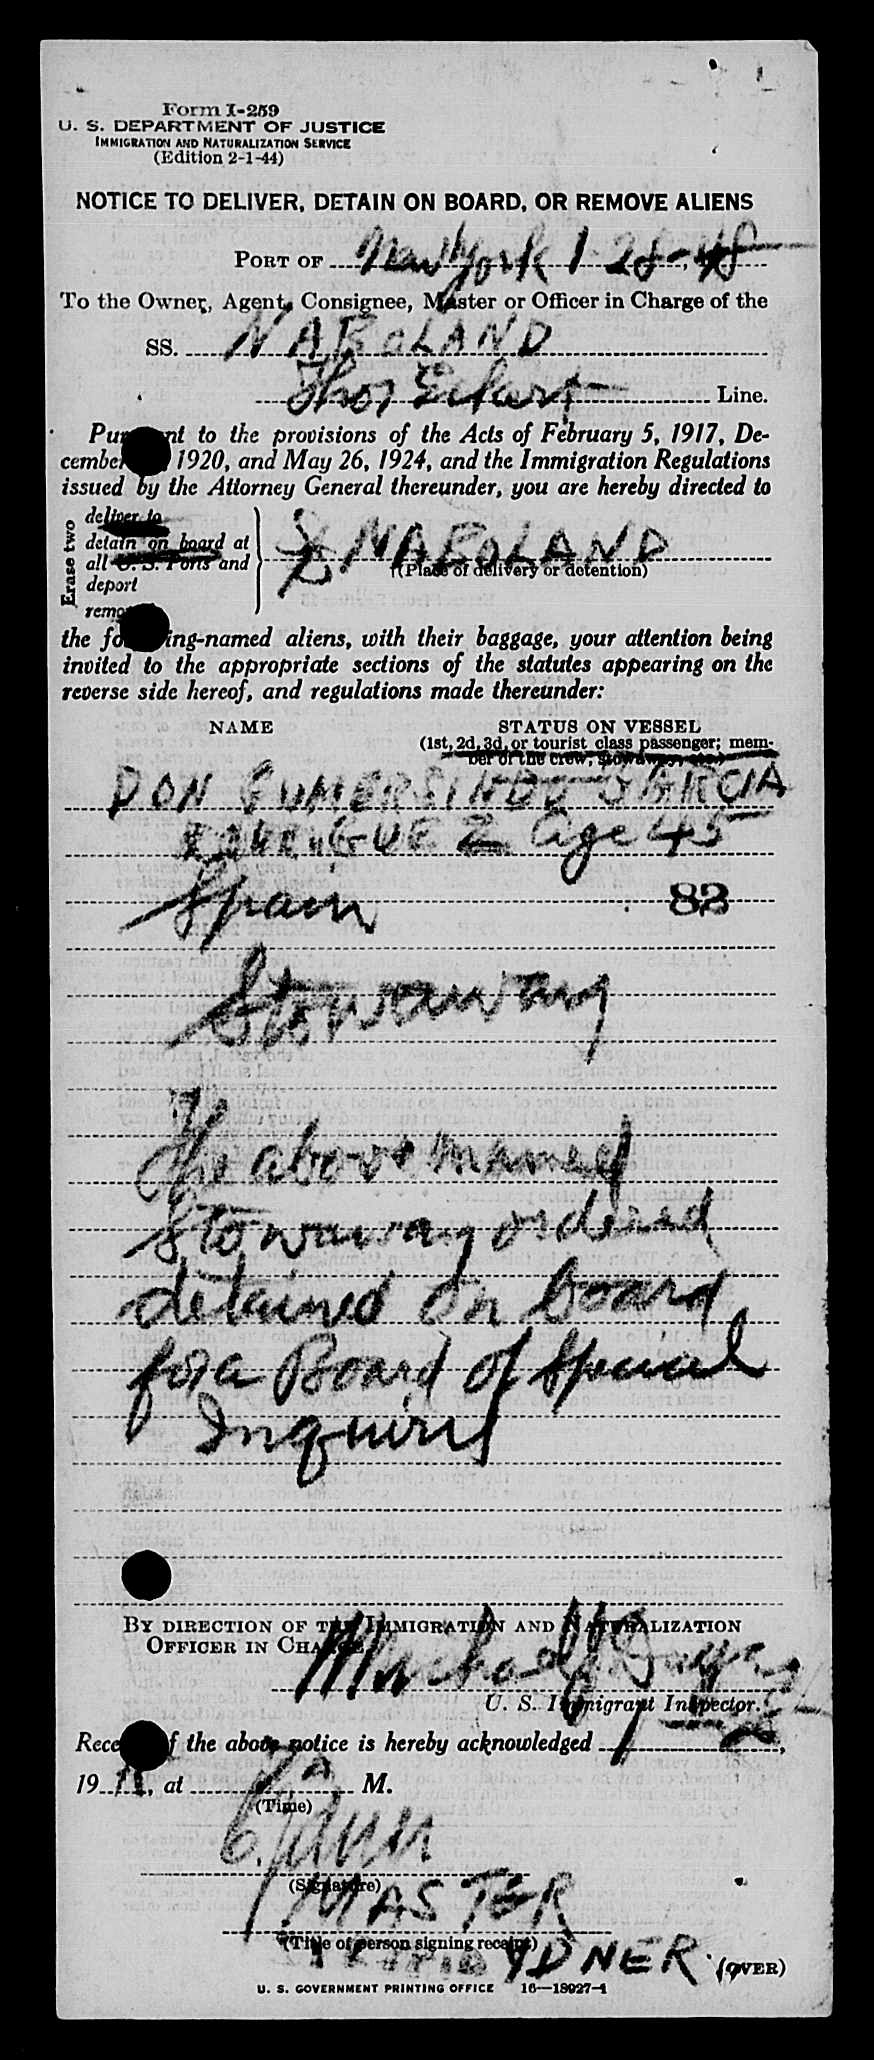 Form I-259
U. S. DEPARTMENT OF JUSTICE
IMMIGRATION AND NATURALIZATION SERVICE
(Edition 2-1-44)
NOTICE TO DELIVER, DETAIN ON BOARD, OR REMOVE ALIENS
PORT OF New York 1-28-48
To the Owner, Agent, Consignee, Master or Officer in Charge of the
SS. NABOLAND
Thos Eckert Line.
Pursuant to the provisions of the Acts of February 5, 1917, De-
cember 1920, and May 26, 1924, and the Immigration Regulations
issued by the Attorney General thereunder, you are hereby directed to
Erase two
deliver to
detain on board at
all U. S. Ports and
deport
remove
NABOLAND
(Place of delivery or detention)
the following-named aliens, with their baggage, your attention being
invited to the appropriate sections of the statutes appearing on the
reverse side hereof, and regulations made thereunder:
NAME STATUS ON VESSEL
(1st, 2d, 3d, or tourist class passenger; mem-
ber of the crew, stowaway, etc.)
DON GUMERSINDO GARCIA
RODRIGUEZ age 45
Spain 82
Stowaway
The above named
Stowaway ordered
detained on board
for a Board of Special
Inquiry
BY DIRECTION OF THE IMMIGRATION AND NATURALIZATION
OFFICER IN CHARGE
U. S. Immigrant Inspector.
Receipt of the above notice is hereby acknowledged
19, at M.
(Time)
(Signature)
MASTER
(Title of person signing receipt)
YDNER (OVER)
U. S. GOVERNMENT PRINTING OFFICE 16—18027-1